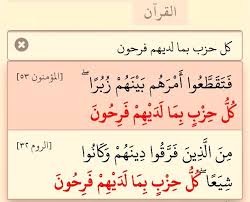 القرآن
كل حزب بما لديهم فرحون
فَتَقَطَّعُوا أَمْرَهُم بَيْنَهُمْ زُبُرًا ۖ [المؤمنون ٥٣]
كُلُّ حِزْبٍ بِمَا لَدَيْهِمْ فَرِحُونَ
مِنَ الَّذِينَ فَرَّقُوا دِينَهُمْ وَكَانُوا [الروم ٣٢]
شِيَعًا ۖ كُلُّ حِزْبٍ بِمَا لَدَيْهِمْ فَرِحُونَ